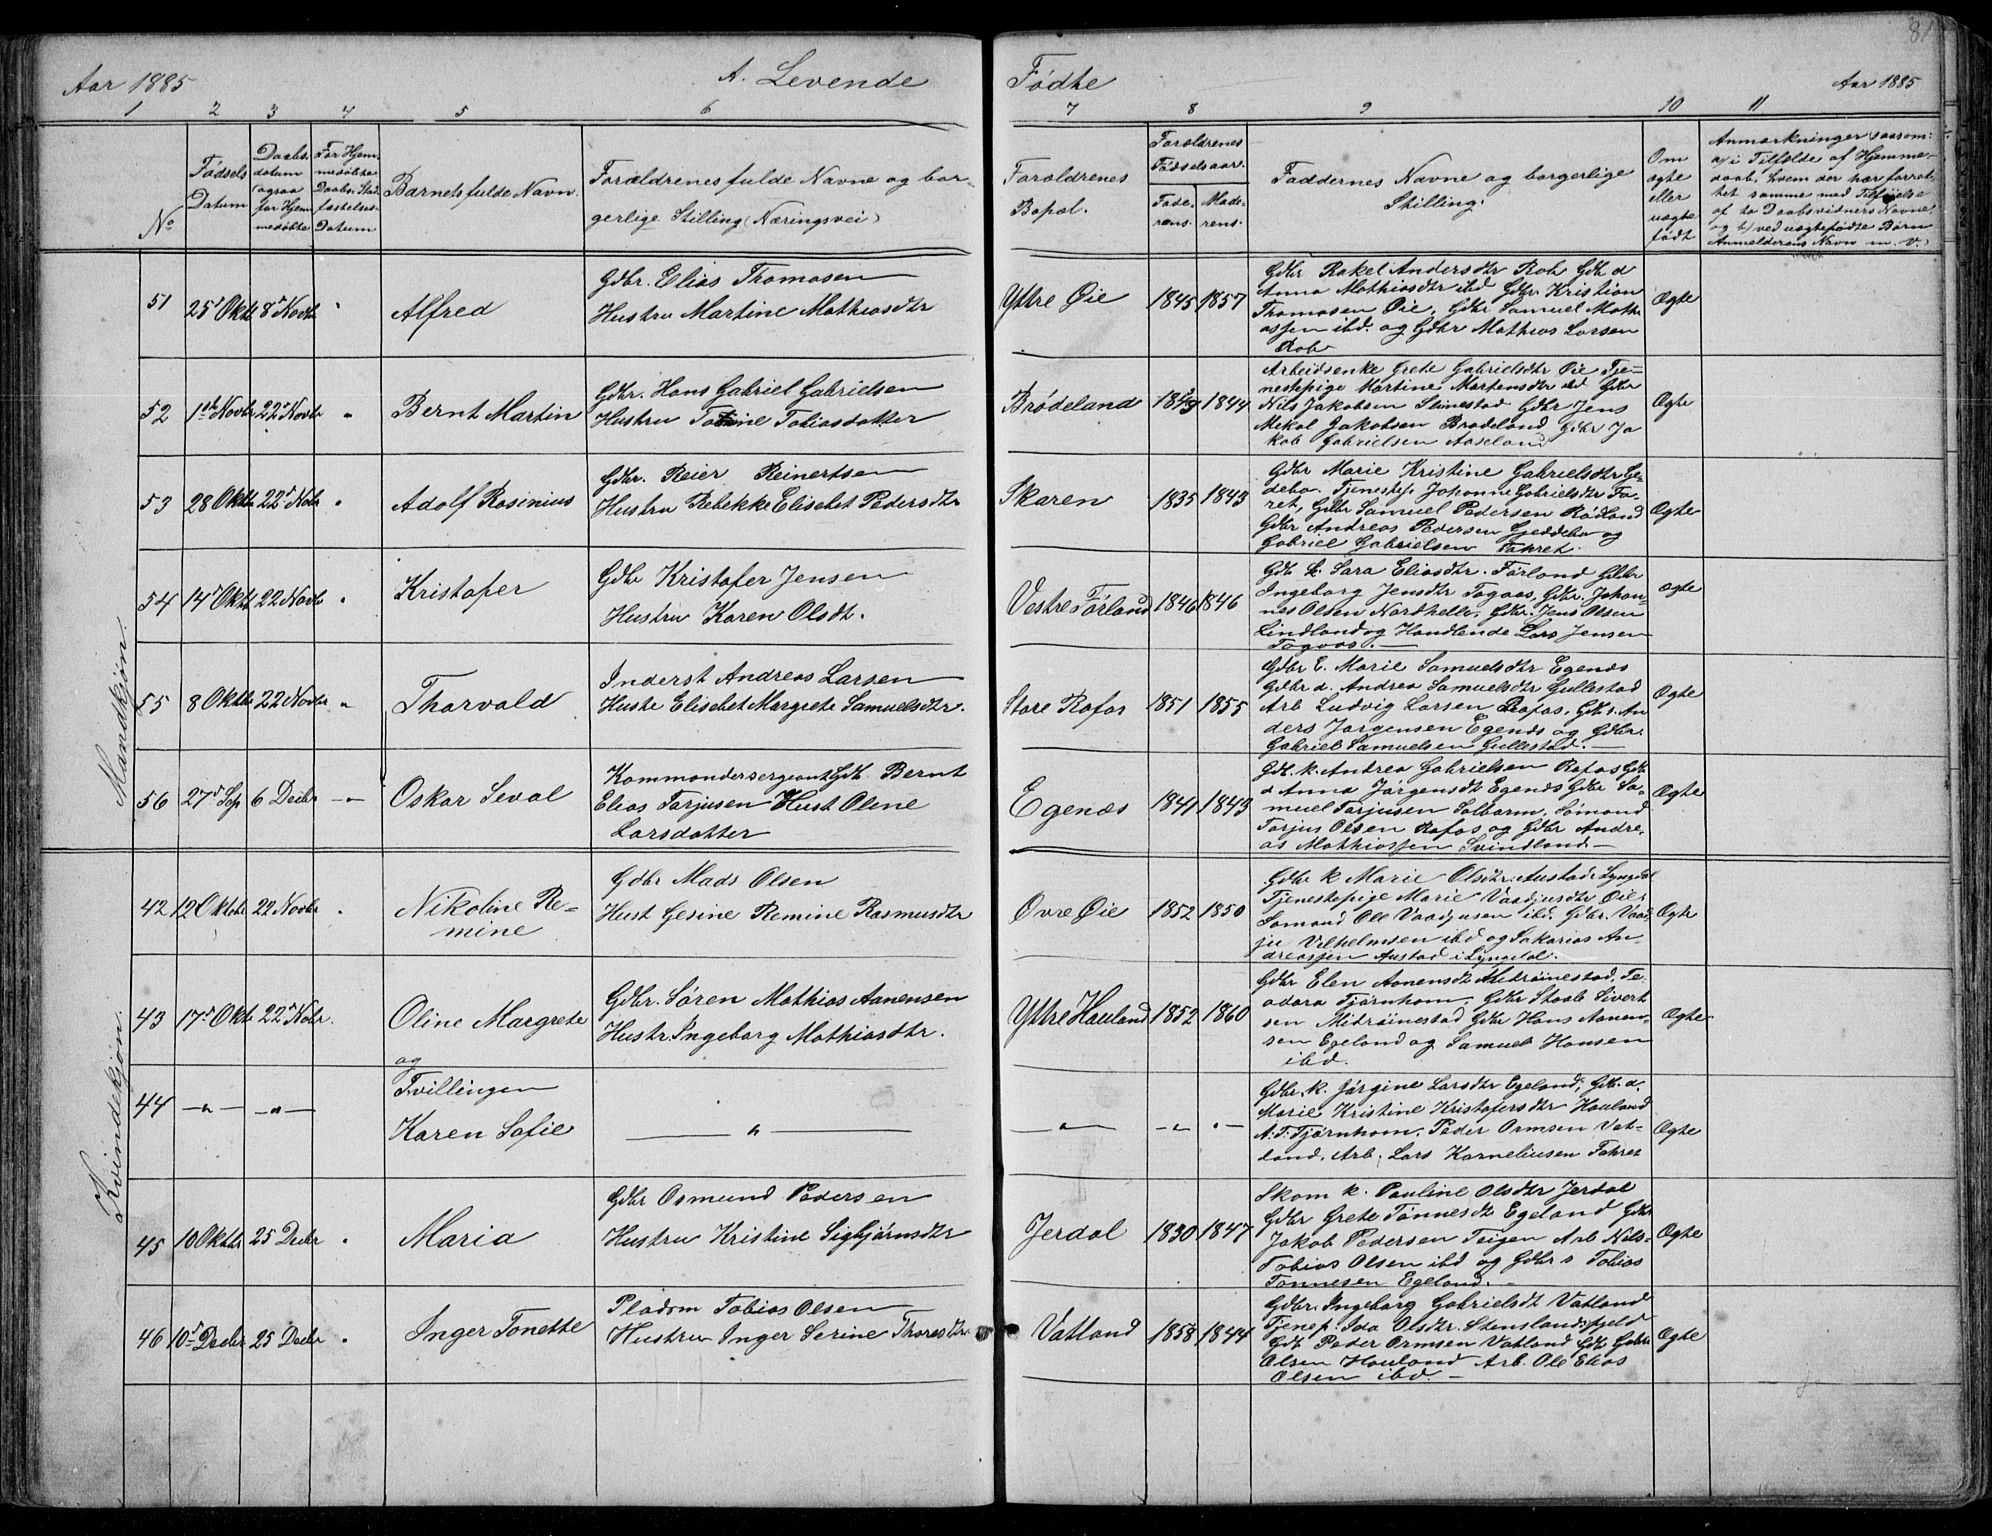 81
Aar 1885
A. Levende
Fødte
Aar 1885
1 2 3 4 5 6 7 8 9 10 11
No
Fødsels
Datum
Daabs-
datum
(ogsaa
for Hjem-
medøbte
For Hjem-
medøbte
Daabs Stad-
fæstelses-
Datum
Barnets fulde Navn
Forældrenes fulde Navne og bor-
gerlige Stilling (Næringsvei)
Forældrenes
Bopæl.
Forældrenes
Fødselsaar.
Fade-
rens.
Mode-
rens.
Faddernes Navne og borgerlige
Stilling.
Om
ægte
eller
uægte
født
Anmærkninger saasom:
a) i Tilfælde af Hjemme-
daab, hvem der har forret-
tet samme med Tilføielse
af to Daabsvidners Navne,
og b) ved uægtefødte Børn
Anmelderens Navn m. V.)
Mandkjøn.
51 25 Oktb 8 Novbr " Alfred
Gdbr. Elias Thomasen
Hustru Martine Mathiasdtr
Yttre Øie 1845 1857
Gdbr Rakel Andersdtr Rob Gdb d
Anna Mathiasdtr ibd Gdbr Kristian
Thomasen Øie, Gdbr Samuel Mathi
assen ibd. og Gdbr Mathias Larsen
Rob
Ægte
52 1ste Novbr 22 Novbr " Bernt Martin
Gdbr. Hans Gabriel Gabrielsen
Hustru Tobine Tobiasdatter
Brødeland 1844
Arbeidsenke Grete Gabrielsdtr Øie Tje-
nestepige Martine Martensdtr ibd Gdbr
Nils Jakobsen Stinestad Gdbr Jens
Mikal Jakobsen Brødeland, Gdbr Ja
kob Gabrielsen Aaseland
Ægte
53 28 Oktbr 22 Nobr " Adolf Rosinius
Gdbr. Reier Reinertsen
Hustru Rebekke Elisebet Pedersdtr
Skaren 1835 1843
Gdbr Marie Kristine Gabrielsdtr Ge-
debo. Tjenestep. Johanne Gabrielsdtr Fa-
ret, Gdbr Samuel Pedersen Rødland
Gdbr Andreas Pedersen Gjeddebo og
Gabriel Gabrielsen Fahret.
Ægte
54 14 Oktb 22 Novb " Kristofer
Gdbr Kristofer Jensen
Hustru Karen Olsdt.
Vestre Førland 1846 1846
Gdb k. Sara Eliasdtr. Førland Gdbr
Ingeborg Jensdtr Togaas, Gdbr. Johan-
nes Olsen Nordhelle, Gdbr. Jens Olsen
Lindland og Handlende Lars Jensen
Togaas.
ægte
55 8 Oktbr 22 Novbr " Thorvald
Inderst Andreas Larsen
Hustr Elisebet Margrete Samuelsdtr.
Store Rafos 1851 1855
Gdbr E. Marie Samuelsdtr Egenæs
Gdbr d. Andrea Samuelsdtr Gullestad
Arb Ludvig Larsen Rafos, Gdb s. An
ders Jørgensen Egenæs og Gdbr.
Gabriel Samuelsen Gullestad.
Ægte
56 27 Sep 6 Decbr " Oskar Seval
Kommandersergeant Gdb Bernt
Elias Tarjusen Hust Oline
Larsdatter
Egenæs 1841 1843
Gdb. k. Andrea Gabrielsen Rafos Gdb
d Anna Jørgensdt Egenæs Gdbr Sa-
muel Tarjusen Solbarm, Sømand
Tarjus Olsen Rafos og Gdbr Andre-
as Mathiassen Svindland
Ægte
Kvindekjøn.
42 12 Oktobr 22 Novbr " Nikoline Re-
mine
Gdbr Mads Olsen
Hust Gesine Remine Rasmusdtr
Øvre Øie 1852 1850
Gdbr k Marie Olsdtr. Austad i Lyngdal
Tjenestepige Marie Vaadjusdtr Øie,
Sømand Ole Vaadjusen ibd. Gdbr. Vaad-
ju Vilhelmsen ibd og Sakarias An-
dreassen Austad i Lyngdal.
Ægte
43 17 Oktb 22 Nobr. Oline Margrete
og
Gdbr. Søren Mathias Aanensen
Hustr. Ingeborg Mathiasdtr.
Yttre Hauland 1852 1860
Gdbr Elen Aanensdt Midtrøinestad, Te-
odora Tjørnhom, Gdbr Staale Sivert
sen Midrøinestad Gdbr Hans Aanen-
sen Egeland og Samuel Hansen
ibd.
Ægte
44 — " — — " — Tvillingen
Karen Sofie
— " — — " — — " — " —
Gdbr. k. Jørgine Larsdtr Egeland, Gdb. d.
Marie Kristine Kristofersdtr Hauland
A. T. Tjørnhom. Peder Ormsen Vat-
land, Arb. Lars Karneliusen Fahret
Ægte
45 10 Oktbr 25 Decbr " Maria
Gdbr Osmund Pedersen
Hustru Kristine Sigbjørnsdtr
Jerdal 1830 1847
Skom k. Pauline Olsdtr Jerdal
Gdbr Grete Tønnesdt Egeland Gdbr
Jakob Pedersen Teigen Arb Nils
Tobias Olsen ibd og Gdbr s Tobias
Tønnesen Egeland.
Ægte
46 10 Decbr 25 Decbr " Inger Tonette
Pladsm Tobias Olsen
Hustru Inger Serine Thoresdtr
Vatland 1858 1844
Gdbr. Ingeborg Gabrielsdt Vatland
Tjenep. Ida Olsdtr. Stenslandsfjeld
Gdb Peder Ormsen Vatland Gdb Gabri
Olsen Hauland Arb. Ole Elias
Olsen ibd.
Ægte